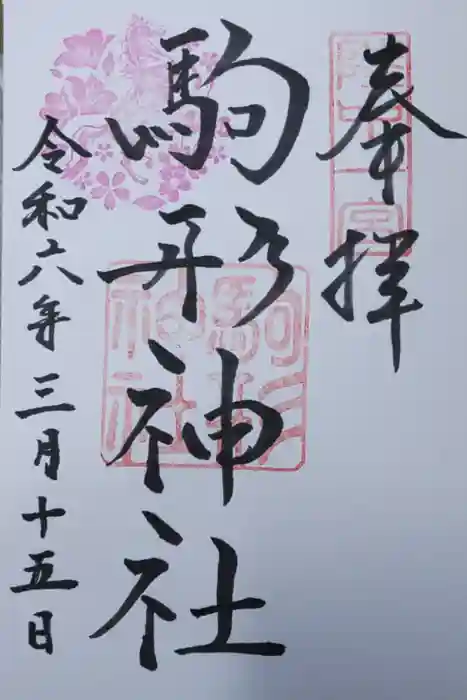 奉拝
陸中一宮
駒形神社
駒形神社
令和六年三月十五日